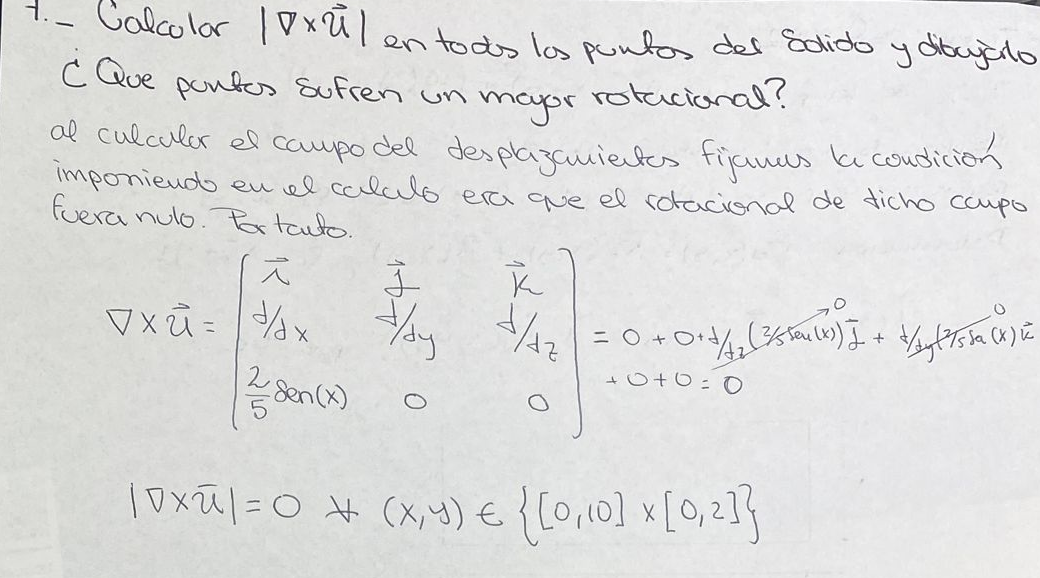 7.- Calcular |∇×u⃗| en todos los puntos del Solido y dibujarlo
¿Que puntos sufren un mayor rotacional?
al calcular el campo del desplazamientos fijamos la condición
imponiendo en el calculo era que el rotacional de dicho campo
fuera nulo. Por tanto.
i⃗ j⃗ k⃗
∇×u⃗ = d/dx d/dy d/dz = 0 + 0 + d/dz (2/5 sen(x)) j⃗ + d/dy (2/5 sen(x)) k⃗
0 0
2/5 Sen(x) 0 0 + 0 + 0 = 0
|∇×u̅| = 0 ∀ (x,y) ∈ {[0,10] × [0,2]}